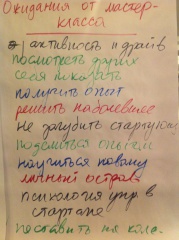 Ожидания от мастер-
класса
активность и драйв
посмотреть других
себя показать
получить опыт
решить наболевшее
не загубить стартующ
поделиться опытом
научиться новому
личный остров
психология упр. в
стартапе
поставить на коле